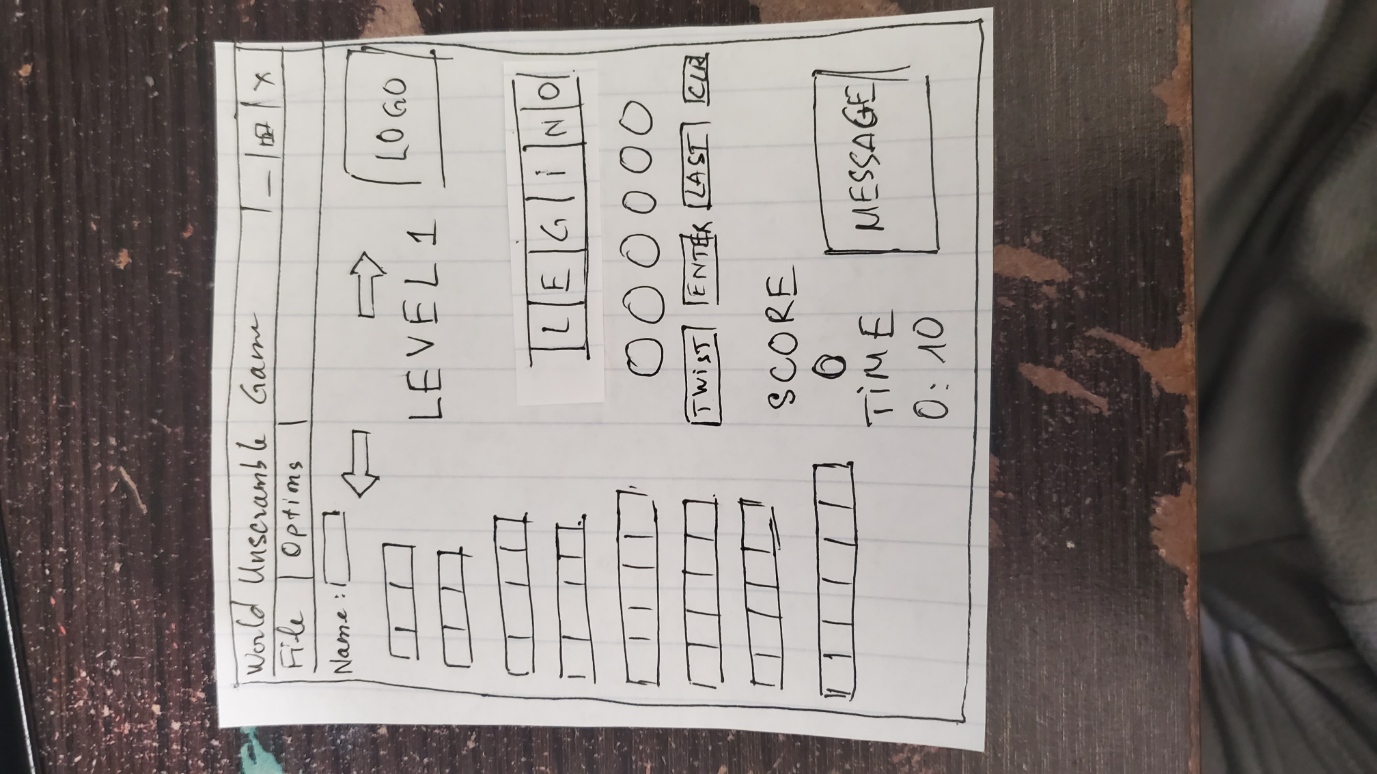 World Unscramble Game _ x
File Options
Name:
LOGO
LEVEL 1
L E G i N O
TWiST ENTER LAST CLR
SCORE
0
TiME
0:10
MESSAGE